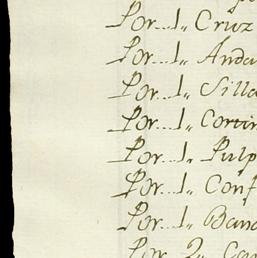 Por...1,, Cruz
Por...1,, Anda
Por...1,, Silla
Por...1,, Cortin
Por...1,, Pulp
Por...1,, Conf
Por...1,, Banc
Por 2,,